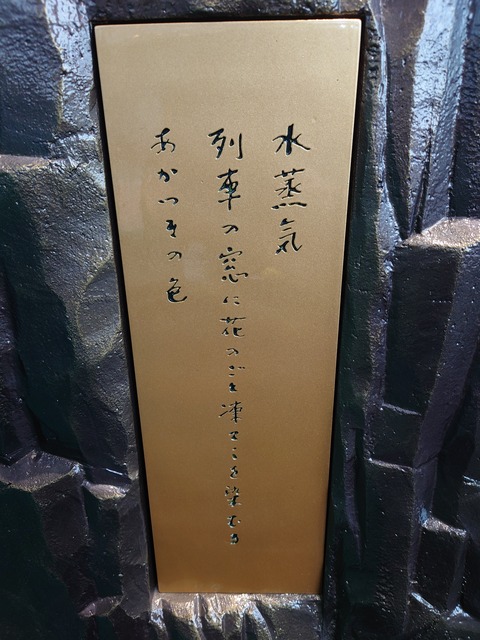 水蒸気
列車の窓に花のごと凍てしを染むる
あかつきの色